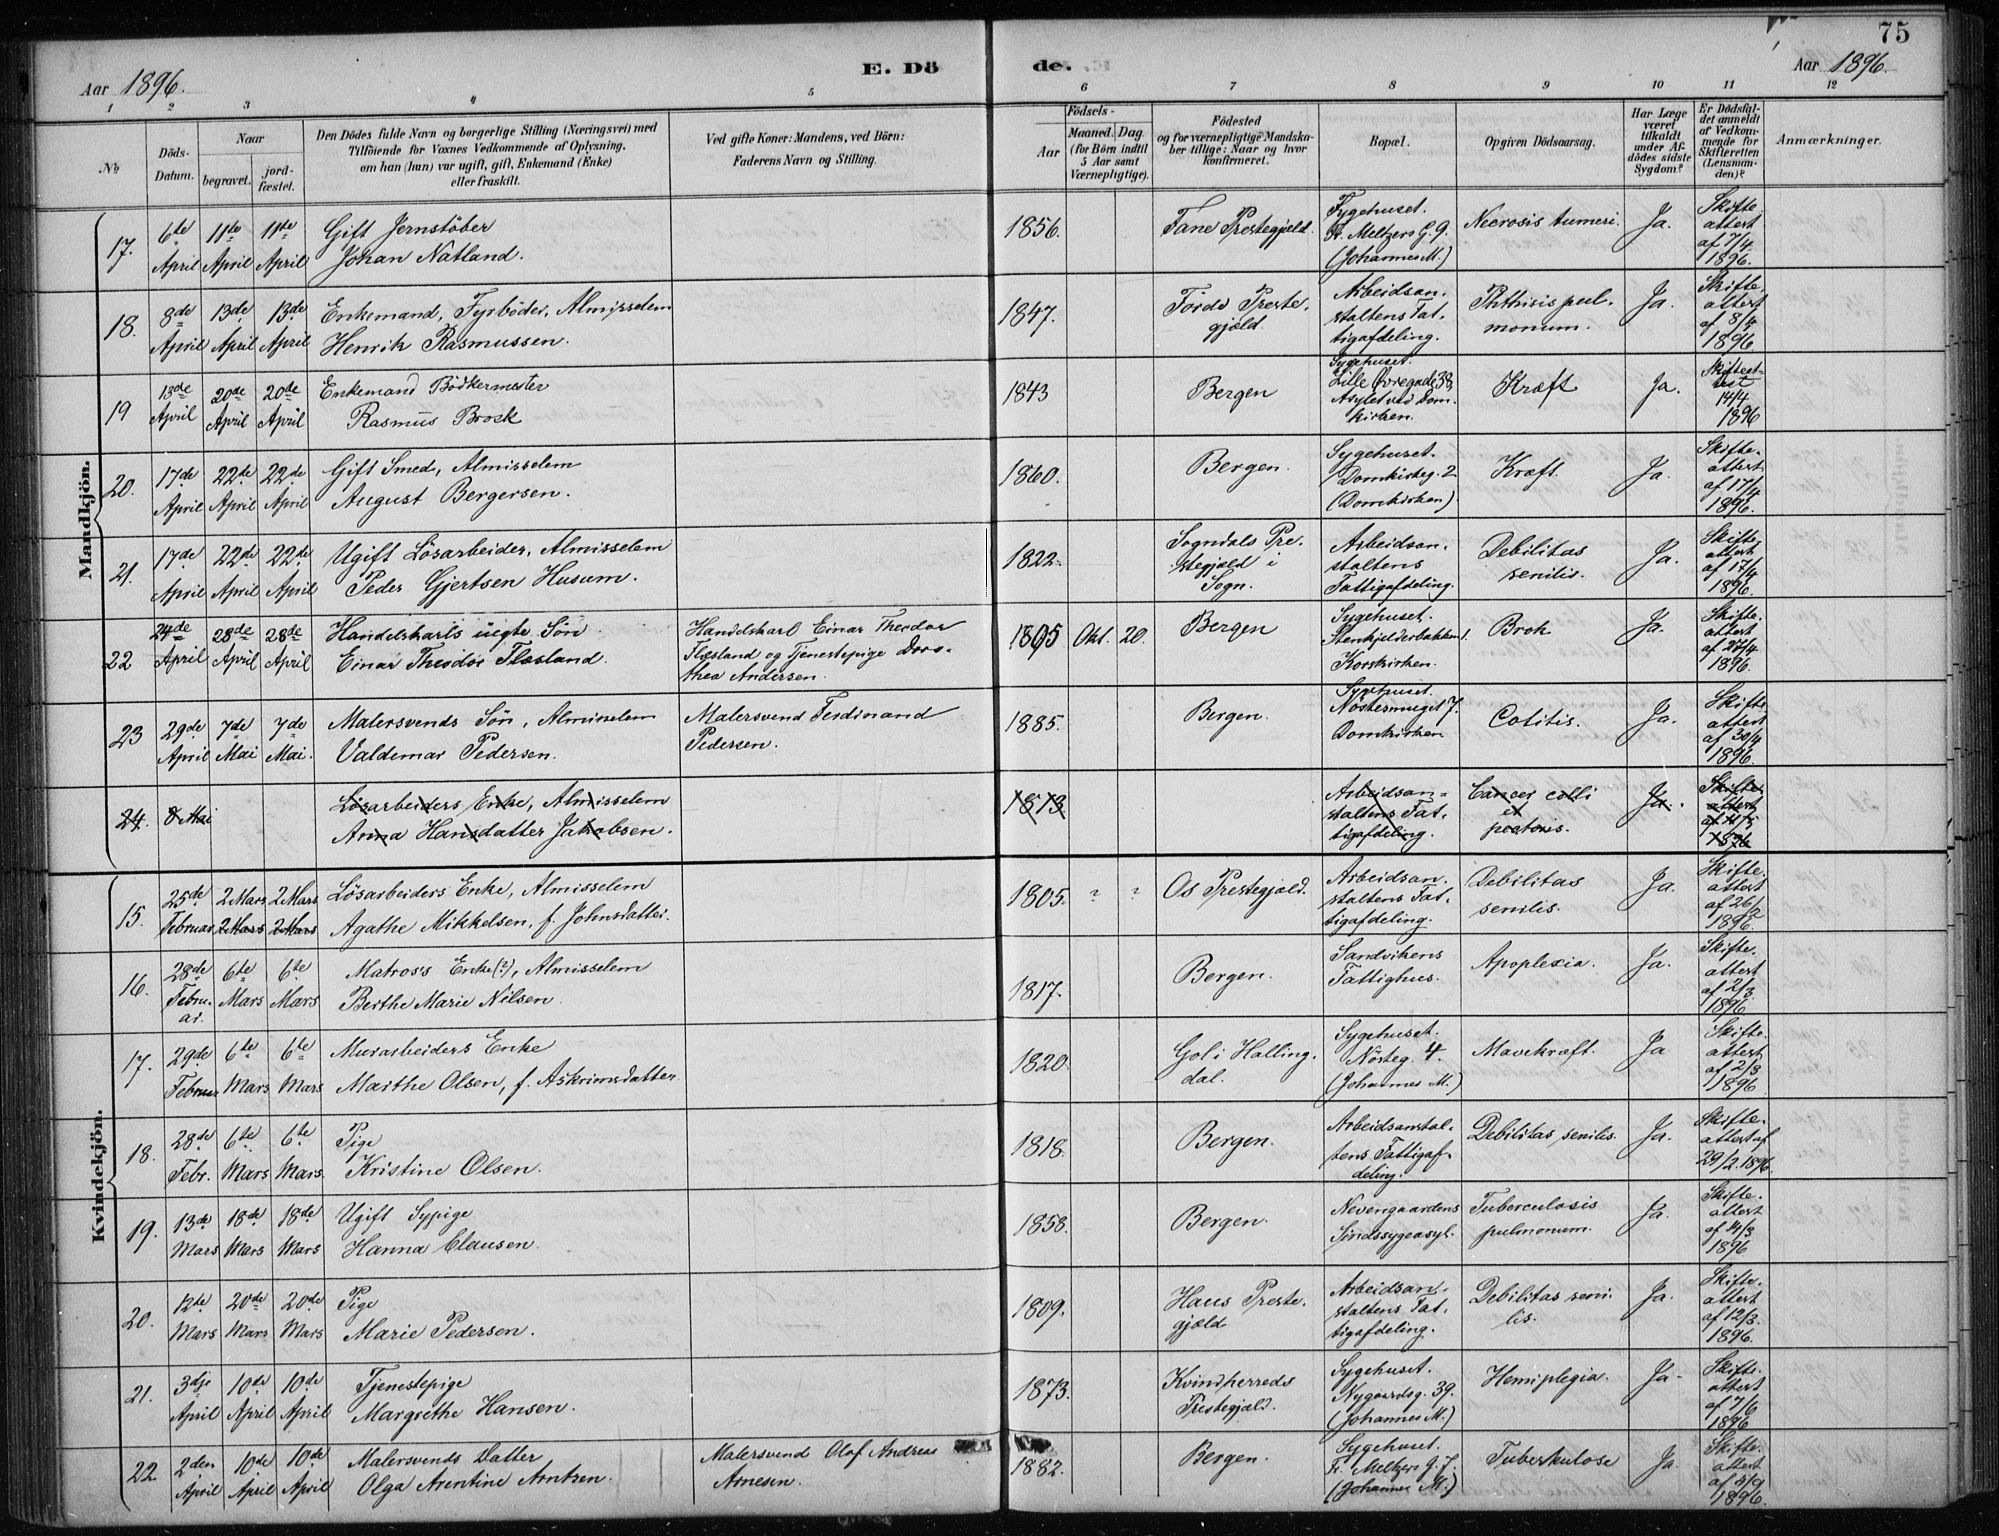 75
E. Döde.
Aar 1896.
Aar 1896.
1 2 3 4 5 6 7 8 9 10 11 12
No
Döds-Datum.
Naar
begravet.
jordfæstet.
Den Dödes fulde Navn og borgerlige Stilling (Næringsvei) med
Tilföiende for Voxnes Vedkommende af Oplysning,
om han (hun) var ugift, gift, Enkemand (Enke)
eller fraskilt.
Ved gifte Koner: Mandens, ved Börn:
Faderens Navn og Stilling.
Födsels-
Aar
Maaned. Dag.
(for Börn indtil
5 Aar samt
Værnepligtige).
Födested
og for værnepligtige Mandskaber tillige: Naar og hvor
konfirmeret.
Bopæl.
Opgiven Dödsaarsag.
Har Læge
været
tilkaldt
under Afdödes sidste
Sygdom?
Er Dödsfaldet anmeldt
af Vedkommende for
Skifteretten
(Lensmanden)?
Anmærkninger.
Mandkjön.
17. 6te April 11te April 11te April Gift Jernstöber
Johan Natland.
1856. Fane Prestegjeld. Sygehuset.
Fr. Meltzers G. 9.
(Johannes M.)
Necrosis humeri. Ja. Skifteattest
af 7/4
1896.
18. 8de April 13de April 13de April Enkemand, Fyrböder, Almisselem
Henrik Rasmussen.
1847. Förde Prestegjeld. Arbeidsanstaltens Fattigafdeling. Phthisis pulmonum. Ja. Skifteattest
af 8/4
1896
19 13de April 20de April 20de April Enkemand Bödkermester
Rasmus Brock
1843 Bergen Sygehuset.
Lille Övregade 38
Asylet ved Domkirken. Kræft Ja. Skifteattest
14/4
1896
20. 17de April 22de April 22de April Gift Smed, Almisselem
August Bergersen.
1860. Bergen. Sygehuset.
Domkirkeg. 2
(Domkirken) Kræft. Ja. Skifteattest
af 17/4
1896.
21. 17de April 22de April 22de April Ugift Lösarbeider, Almisselem
Peder Gjertsen Husum.
1822. Sogndals Prestegjeld i
Sogn. Arbeidsanstaltens
Fattigafdeling. Debilitas
senilis. Ja. Skifteattest
af 17/4
1896.
22 24de April 28de April 28de April Handelskarls uegte Sön
Einar Theodor Flæsland.
Handelskarl Einar Theodor
Flæsland og Tjenestepige Dorothea Andersen.
1895 Okt. 20. Bergen Sygehuset.
Stenkjelderbakken 1.
Korskirken. Brok Ja. Skifteattest
af 27/4
1896.
23 29de April 7de Mai 7de Mai. Malersvends Sön, Almisselem
Valdemar Pedersen.
Malersvend Ferdinand
Pedersen.
1885. Bergen. Sygehuset.
Nöstermuget 7.
Domkirken Colitis. Ja. Skifteattest
af 30/4
1896.
24. 8 Mai Lösarbeiders Enke, Almisselem
Anna Hansdatter Jakobsen.
1813 Arbeidsanstaltens Fattigafdeling. Cancer colli
et
pectoris. Ja. Skifteattest
1896
Kvindekjön.
15. 25de Februar 2 Mars 2 Mars
2 Mars 2 Mars
Lösarbeiders Enke, Almisselem
Agathe Mikkelsen, f. Johnsdatter.
1805. ? ? Os Prestegjeld. Arbeidsanstaltens Fattigafdeling. Debilitas
senilis. Ja. Skifteattest
af 26/2
1896.
16. 28de Februar. 6te Mars 6te Mars Matross Enke(?), Almisselem
Berthe Marie Nilsen.
1817. Bergen. Sandvikens
Fattighus. Apoplexia. Ja. Skifteattest
af 2/3
1896.
17. 29de Februar 6te Mars 6te Mars Murarbeiders Enke
Marthe Olsen, f. Askrimsdatter
1820. Gol i Hallingdal. Sygehuset.
Nösteg. 4.
(Johannes M.) Mavekræft. Ja Skifteattest
af 2/3
1896
18. 28de Febr. 6te Mars 6te Mars. Pige
Kristine Olsen.
1818. Bergen. Arbeidsanstaltens Fattigafdeling. Debilitas senilis. Ja. Skifteattest af
29/2 1896
19. 13de Mars 18de Mars 18de Mars Ugift Sypige
Hanna Clausen.
1858. Bergen. Nevengaardens
Sindssygeasyl. Tuberculosis
pulmonum. Ja. Skifteattest
af 14/3
1896
20. 12te Mars 20de Mars 20de Mars Pige
Marie Pedersen.
1809. Haus Prestegjeld. Arbeidsanstaltens Fattigafdeling. Debilitas senilis. Ja. Skifteattest
af 12/3.
1896.
21. 3dje April 10de April 10de April Tjenestepige
Margrethe Hansen.
1873. Kvindherreds
Prestegjeld. Sygehuset.
Nygaardsg. 39.
(Johannes M.) Hemiplegia. Ja. Skifteattest
1896
22 2den April 10de April 10de April Malersvends Datter
Olga Arentine Arntzen.
Malersvend Olaf Andreas
Arnesen.
1882. Bergen. Sygehuset.
Fr. Meltzers G. 7.
(Johannes M.) Tuberkulose Ja. Skifteattest
1896.